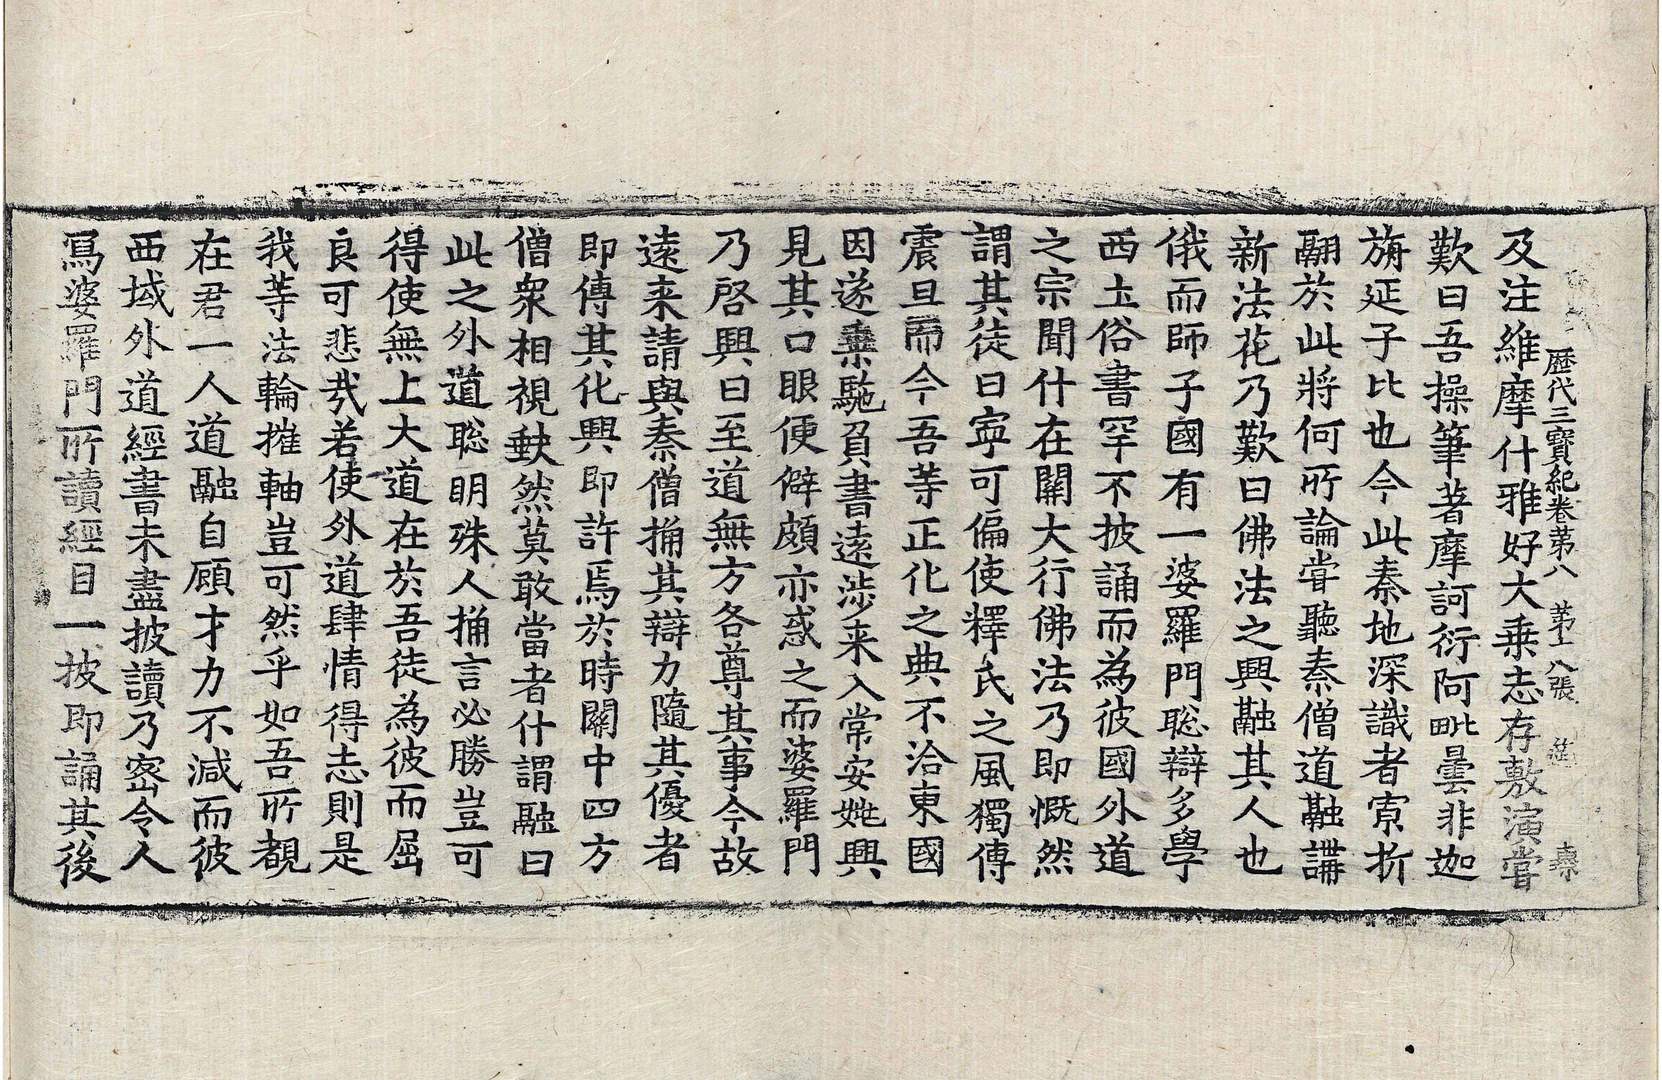 歷代三寶紀卷第八 第十八張
及注維摩什雅好大乗志存敷演嘗
歎曰吾操筆著摩訶衍阿毗曇非迦
旃延子比也今此秦地深識者寮折
翮於此將何所論嘗聽秦僧道融講
新法花乃歎曰佛法之興融其人也
俄而師子國有一婆羅門聡辯多學
西土俗書罕不披誦而為彼國外道
之宗聞什在關大行佛法乃即慨然
謂其徒曰寧可偏使釋氏之風獨傳
震旦而今吾等正化之典不洽東國
因遂乗馳負書遠涉来入常安姚興
見其口眼便僻頗亦惑之而婆羅門
乃啓興曰至道無方各尊其事今故
遠来請與秦僧捔其辯力隨其優者
即傳其化興即許焉於時關中四方
僧衆相視缺然莫敢當者什謂融曰
此之外道聡明殊人捔言必勝豈可
得使無上大道在於吾徒為彼而屈
良可悲㢤若使外道肆情得志則是
我等法輪摧軸豈可然乎如吾所覩
在君一人道融自顧才力不減而彼
西域外道經書未盡披讀乃密令人
寫婆羅門所讀經目一披即誦其後